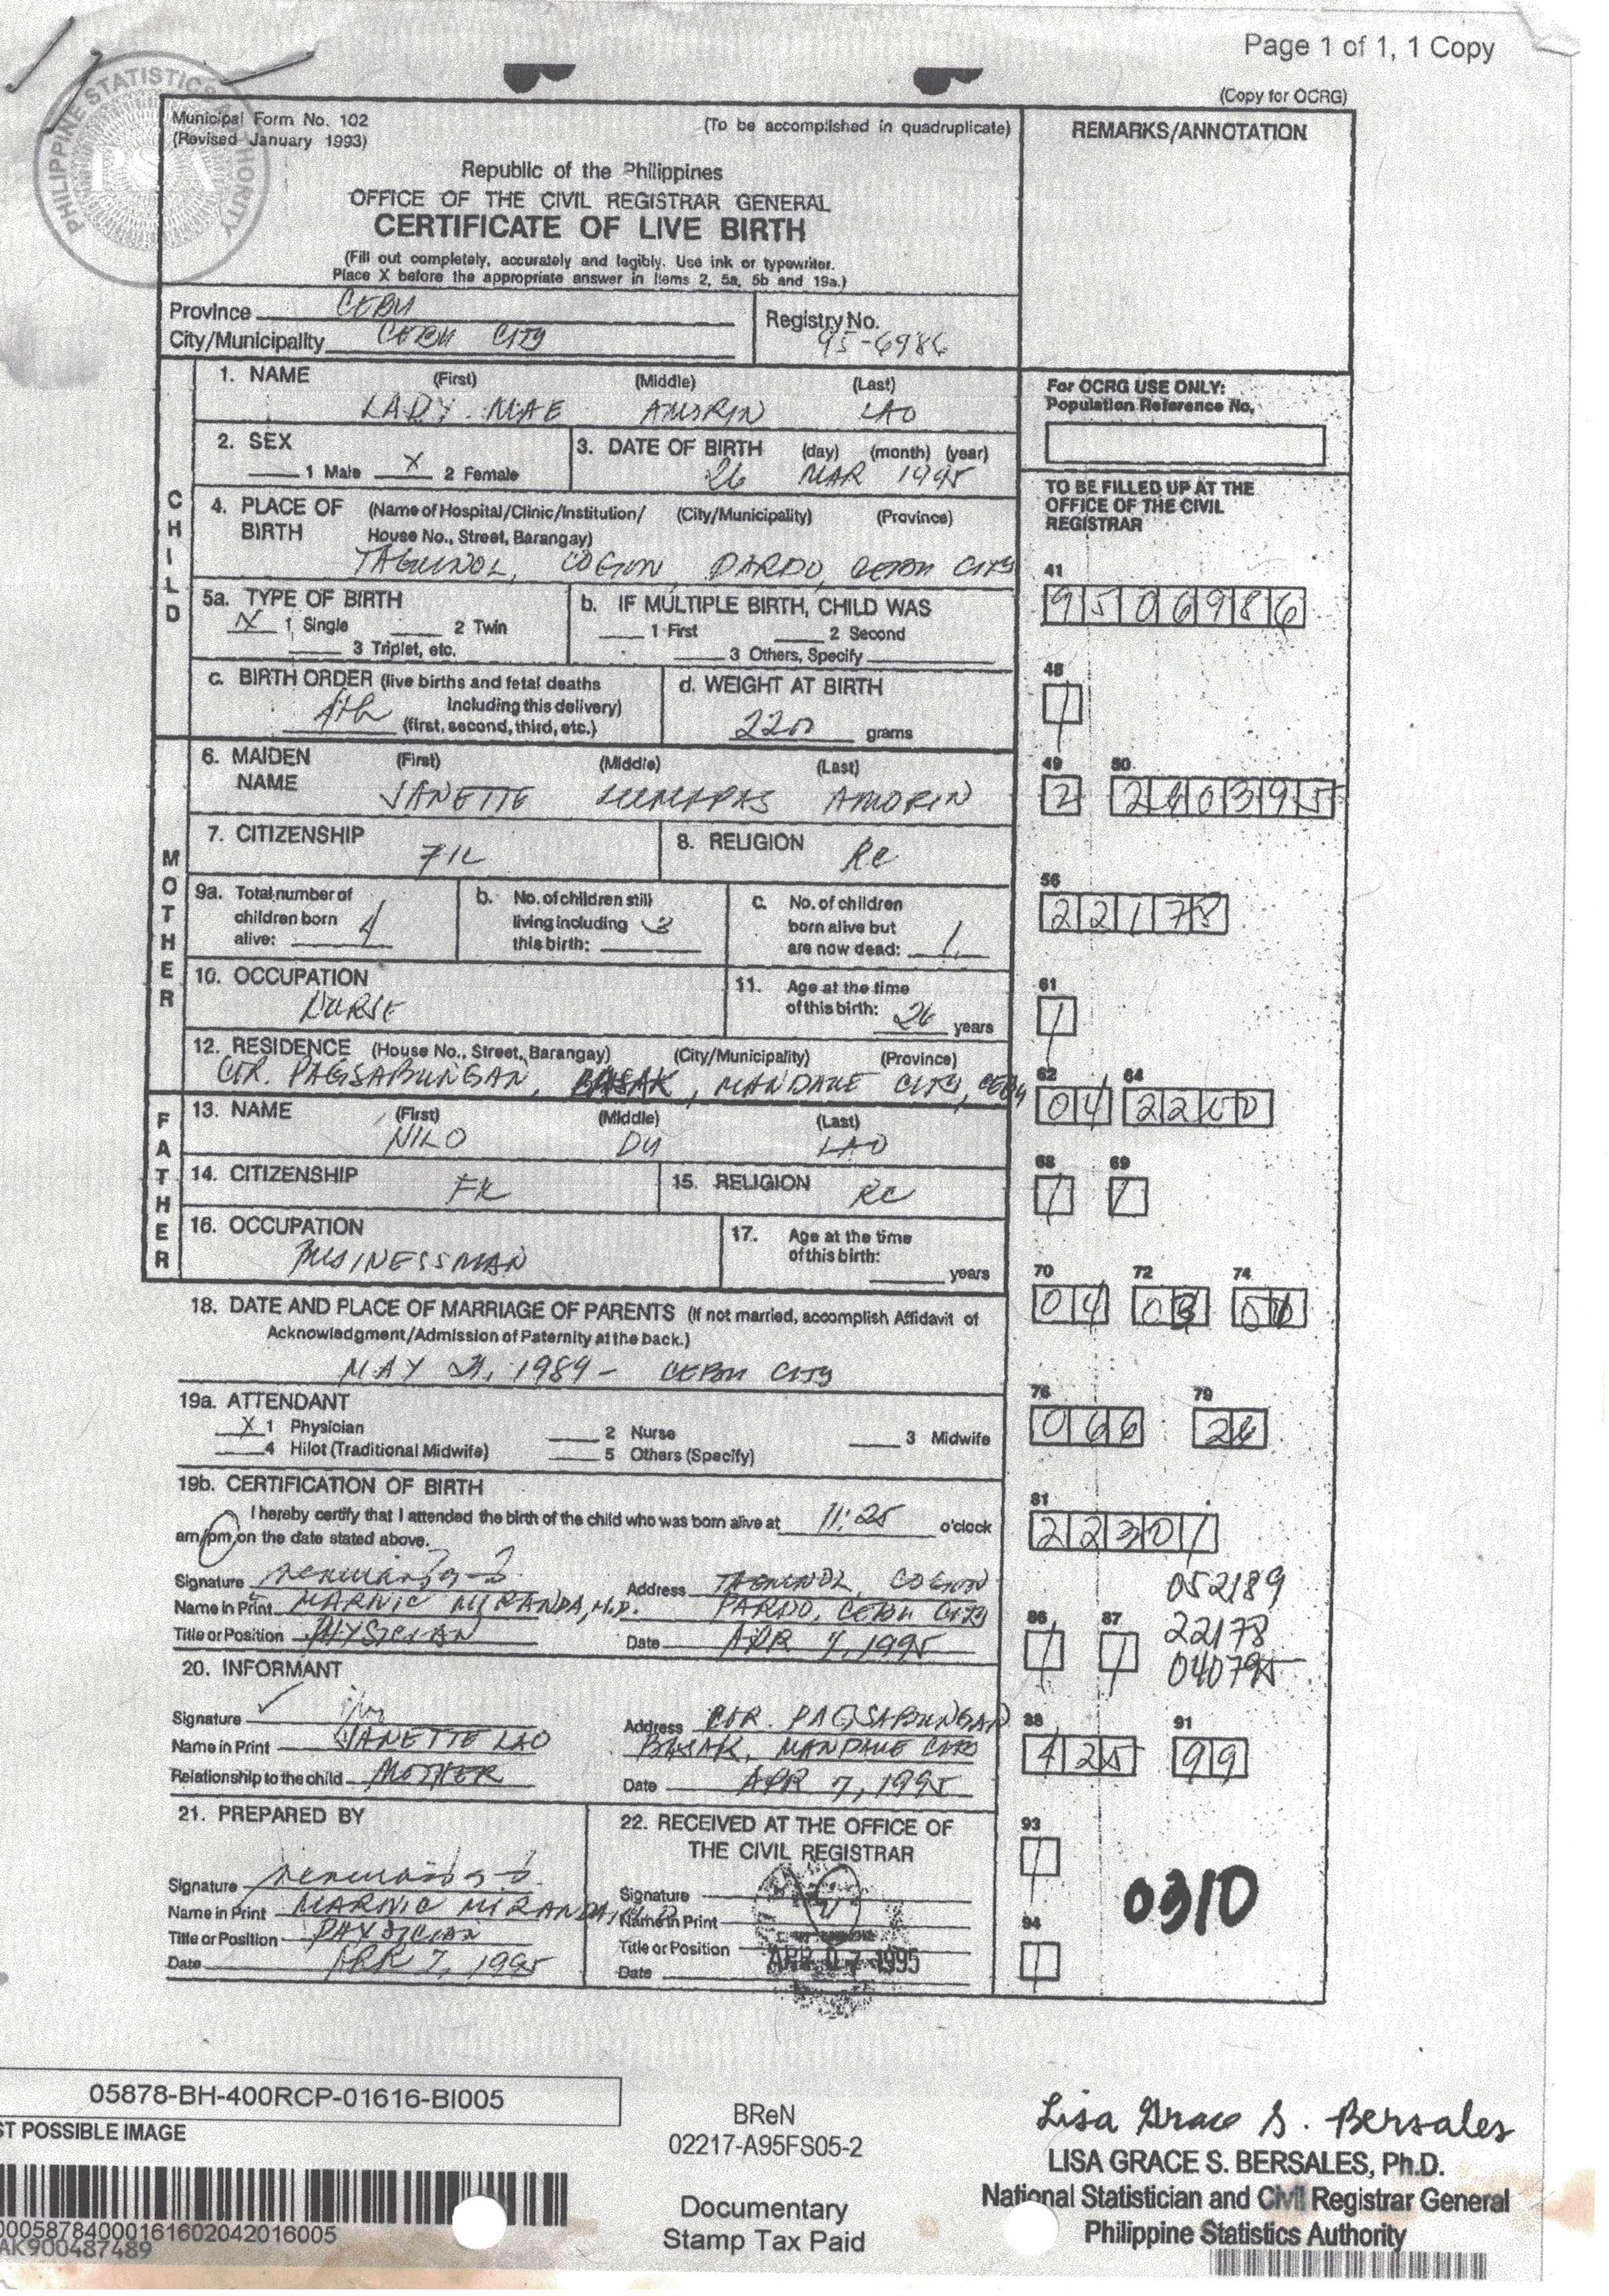 Page 1 of 1, 1 Copy
(Copy for OCRG)
PHILIPPINE STATISTICS AUTHORITY
PSA
Municipal Form No. 102
(Revised January 1993)
(To be accomplished in quadruplicate)
Republic of the Philippines
OFFICE OF THE CIVIL REGISTRAR GENERAL
CERTIFICATE OF LIVE BIRTH
(Fill out completely, accurately and legibly. Use ink or typewriter.
Place X before the appropriate answer in Items 2, 5a, 5b and 19a.)
REMARKS/ANNOTATION
Province CEBU
City/Municipality CEBU CITY
Registry No.
95-6986
CHILD
1. NAME (First) (Middle) (Last)
LADY MAE AMORIN LAO
2. SEX
1 Male X 2 Female
3. DATE OF BIRTH (day) (month) (year)
26 MAR 1995
4. PLACE OF BIRTH (Name of Hospital/Clinic/Institution/ (City/Municipality) (Province)
House No., Street, Barangay)
TAGUNOL, COGON, PARDO, CEBU CITY
5a. TYPE OF BIRTH
X 1 Single 2 Twin
3 Triplet, etc.
b. IF MULTIPLE BIRTH, CHILD WAS
1 First 2 Second
3 Others, Specify
c. BIRTH ORDER (live births and fetal deaths
including this delivery)
4th (first, second, third, etc.)
d. WEIGHT AT BIRTH
2200 grams
MOTHER
6. MAIDEN NAME (First) (Middle) (Last)
JANETTE LUMAPAS AMORIN
7. CITIZENSHIP
FIL
8. RELIGION
RC
9a. Total number of
children born
alive: 4
b. No. of children still
living including
this birth: 3
c. No. of children
born alive but
are now dead: 1
10. OCCUPATION
NURSE
11. Age at the time
of this birth: 26 years
12. RESIDENCE (House No., Street, Barangay) (City/Municipality) (Province)
COR. PAGSABUNGAN, BASAK, MANDAUE CITY, CEBU
FATHER
13. NAME (First) (Middle) (Last)
NILO DY LAO
14. CITIZENSHIP
FIL
15. RELIGION
RC
16. OCCUPATION
BUSINESSMAN
17. Age at the time
of this birth:
years
18. DATE AND PLACE OF MARRIAGE OF PARENTS (If not married, accomplish Affidavit of
Acknowledgment/Admission of Paternity at the back.)
MAY 21, 1989 - CEBU CITY
19a. ATTENDANT
X 1 Physician 2 Nurse 3 Midwife
4 Hilot (Traditional Midwife) 5 Others (Specify)
19b. CERTIFICATION OF BIRTH
I hereby certify that I attended the birth of the child who was born alive at 11:25 o'clock
am/pm on the date stated above.
Signature
Address TAGUNOL, COGON
Name in Print MARNIE MIRANDA, M.D.
PARDO, CEBU CITY
Title or Position PHYSICIAN
Date APR 7, 1995
20. INFORMANT
Signature
Address COR. PAGSABUNGAN
Name in Print JANETTE LAO
BASAK, MANDAUE CITY
Relationship to the child MOTHER
Date APR 7, 1995
21. PREPARED BY
Signature
Name in Print MARNIE MIRANDA, M.D.
Title or Position PHYSICIAN
Date APR 7, 1995
22. RECEIVED AT THE OFFICE OF
THE CIVIL REGISTRAR
Signature
Name in Print
Title or Position
Date APR 07 1995
For OCRG USE ONLY:
Population Reference No.
TO BE FILLED UP AT THE
OFFICE OF THE CIVIL
REGISTRAR
41
9506986
48
1
49 50
2 260395
56
22178
61
1
62 64
04 2200
68 69
1 1
70 72 74
04 03 01
76 79
066 26
81
22301
052189
86 87
1 1
22178
040795
88 91
425 99
93
1
94
1
0310
05878-BH-400RCP-01616-BI005
ST POSSIBLE IMAGE
000587840001616020420​16005
AK900487489
BReN
02217-A95FS05-2
Documentary
Stamp Tax Paid
Lisa Grace S. Bersales
LISA GRACE S. BERSALES, Ph.D.
National Statistician and Civil Registrar General
Philippine Statistics Authority